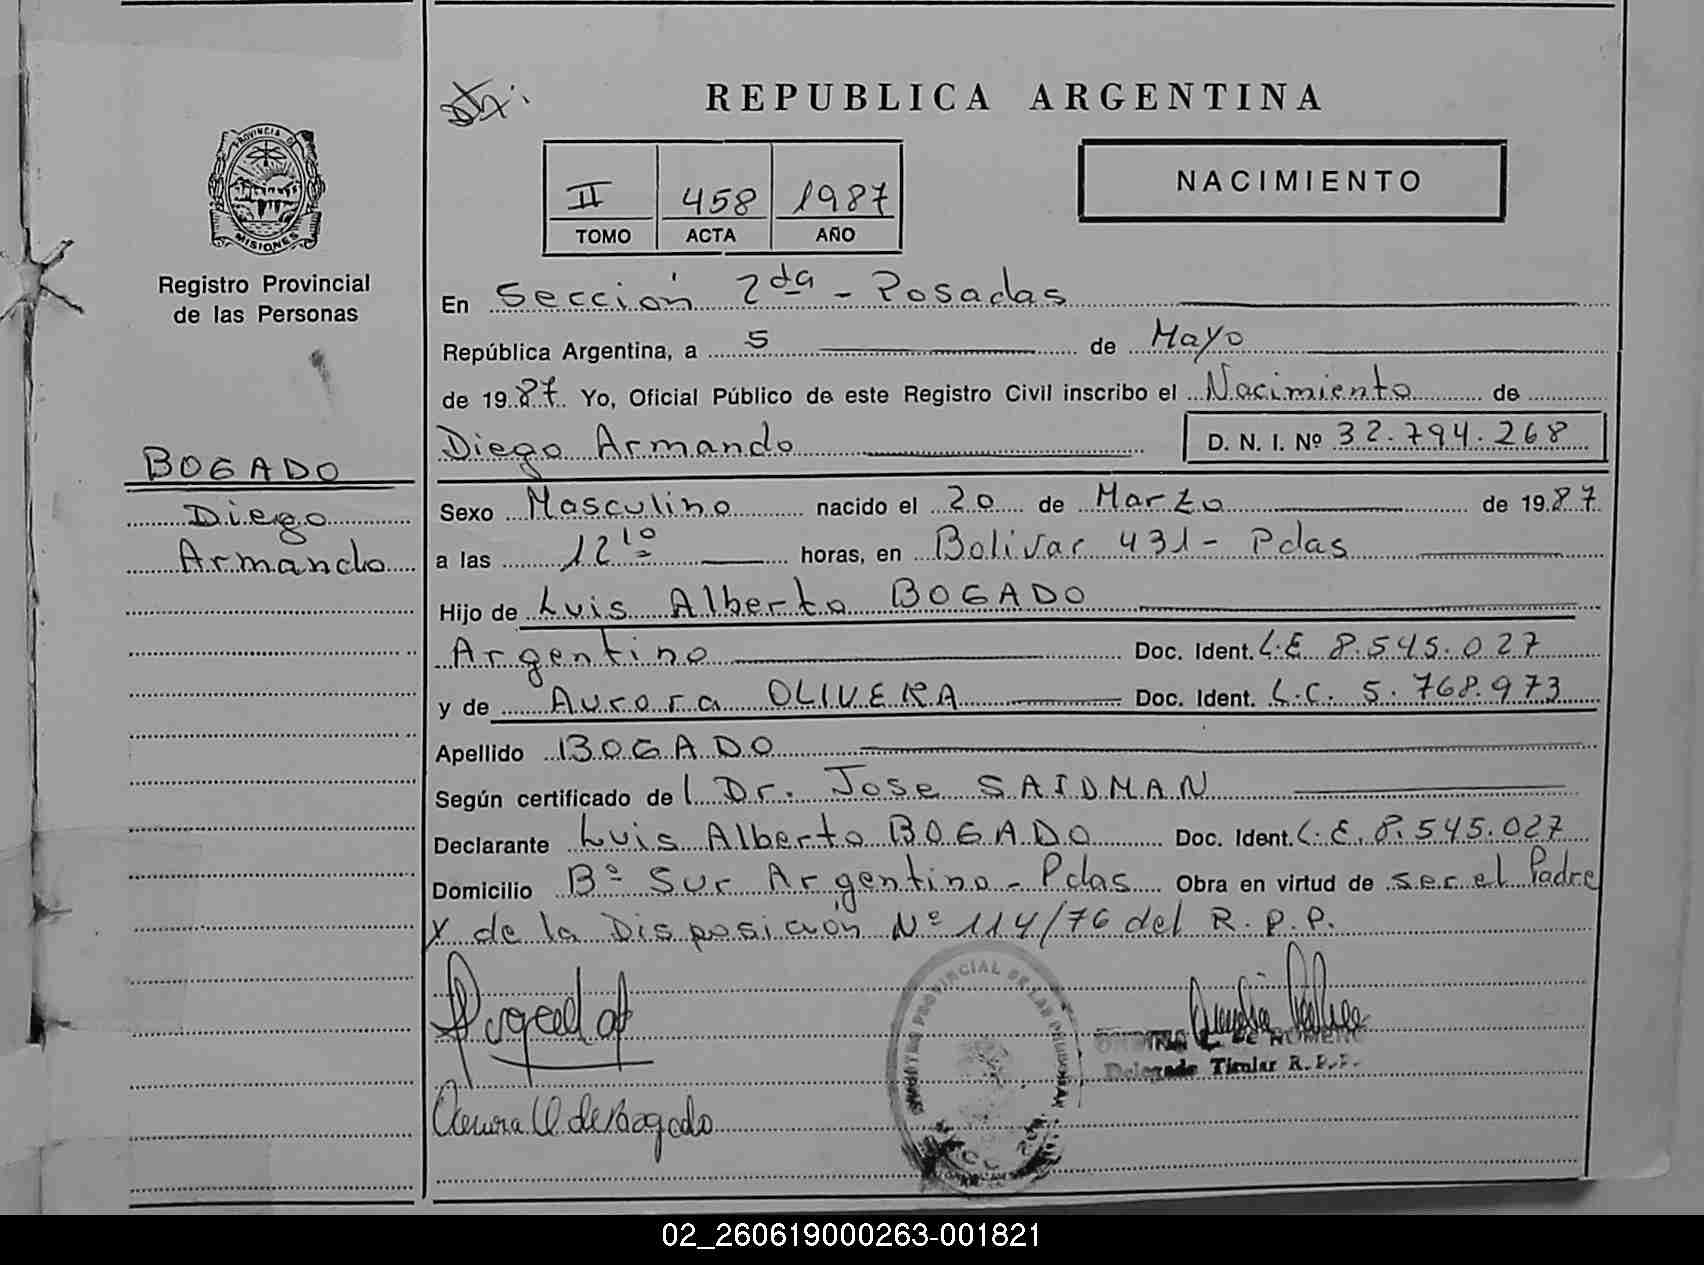 REPUBLICA ARGENTINA
PROVINCIA D
MISIONES
Registro Provincial
de las Personas
II 458 1987
TOMO ACTA AÑO
NACIMIENTO
En Sección 2da - Posadas
República Argentina, a 5 de Mayo
de 1987. Yo, Oficial Público de este Registro Civil inscribo el Nacimiento de
Diego Armando D. N. I. Nº 32.794.268
BOGADO
Diego
Armando
Sexo Masculino nacido el 20 de Marzo de 1987
a las 12 10 horas, en Bolivar 431 - Pdas
Hijo de Luis Alberto BOGADO
Argentino Doc. Ident. L.E 8.545.027
y de Aurora OLIVERA Doc. Ident. L.C. 5.768.973
Apellido BOGADO
Según certificado de l Dr. Jose SAIDMAN
Declarante Luis Alberto BOGADO Doc. Ident. L.E. 8.545.027
Domicilio Bº Sur Argentino - Pdas Obra en virtud de ser el Padre
y de la Disposición Nº 114/76 del R.P.P.
PROVINCIAL DE LAS
DE ROMERO
Delegado Titular R.P.P.
de Bogado
02_260619000263-001821